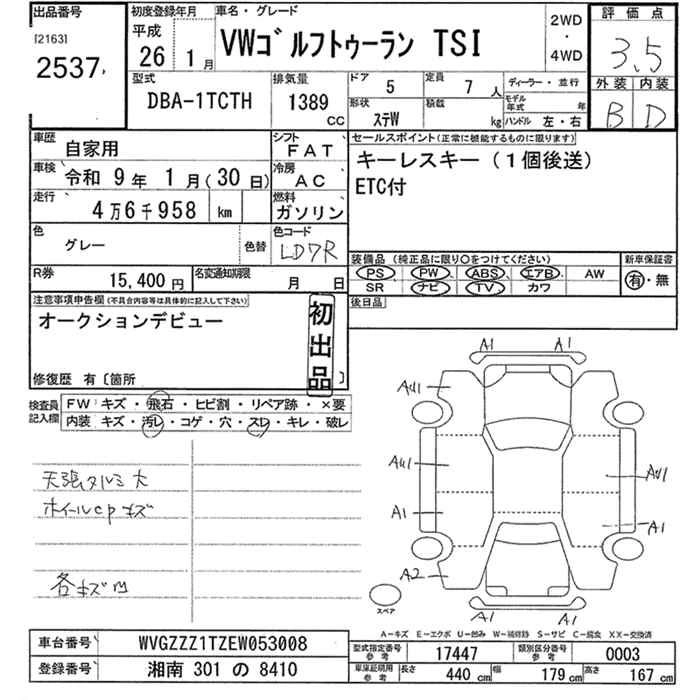 出品番号
[2163]
2537
初度登録年月
平成
26 1月
車名・グレード
VWゴルフトゥーラン TSI
2WD
・
4WD
評価点
3.5
外装 内装
B D
型式
DBA-1TCTH
排気量
1389
CC
ドア 5
定員 7 人
ディーラー・並行
形状 ステW
積載 kg
モデル年式 年
ハンドル 左・右
車歴 自家用
シフト FAT
車検 令和 9年 1月(30日)
冷房 AC
走行 4万6千958 km
燃料 ガソリン
色 グレー
色替
色コード LD7R
R券 15,400円
名変通知期限 月 日
セールスポイント(正常に機能するものに限ります)
キーレスキー(1個後送)
ETC付
装備品(純正品に限り○をつけてください)
新車保証書
PS PW ABS エアB AW
SR ナビ TV カワ
有・無
後日品
注意事項申告欄(不具合内容等は具体的に記入して下さい)
オークションデビュー
初出品
修復歴 有〔箇所 〕
検査員記入欄
FW キズ・飛石・ヒビ割・リペア跡・×要
内装 キズ・汚レ・コゲ・穴・スレ・キレ・破レ
天張タルミ大
ホイールcpキズ
各キズ凹
A1 A1
AU1
AU1 AU1
A1 A1
A2
A1 A1
スペア
A-キズ E-エクボ U-凹み W-補修跡 S-サビ C-腐食 XX-交換済
車台番号 WVGZZZ1TZEW053008
登録番号 湘南 301 の 8410
型式指定番号 参考 17447
類別区分番号 参考 0003
車庫証明用 参考 長さ 440 cm 幅 179 cm 高さ 167 cm